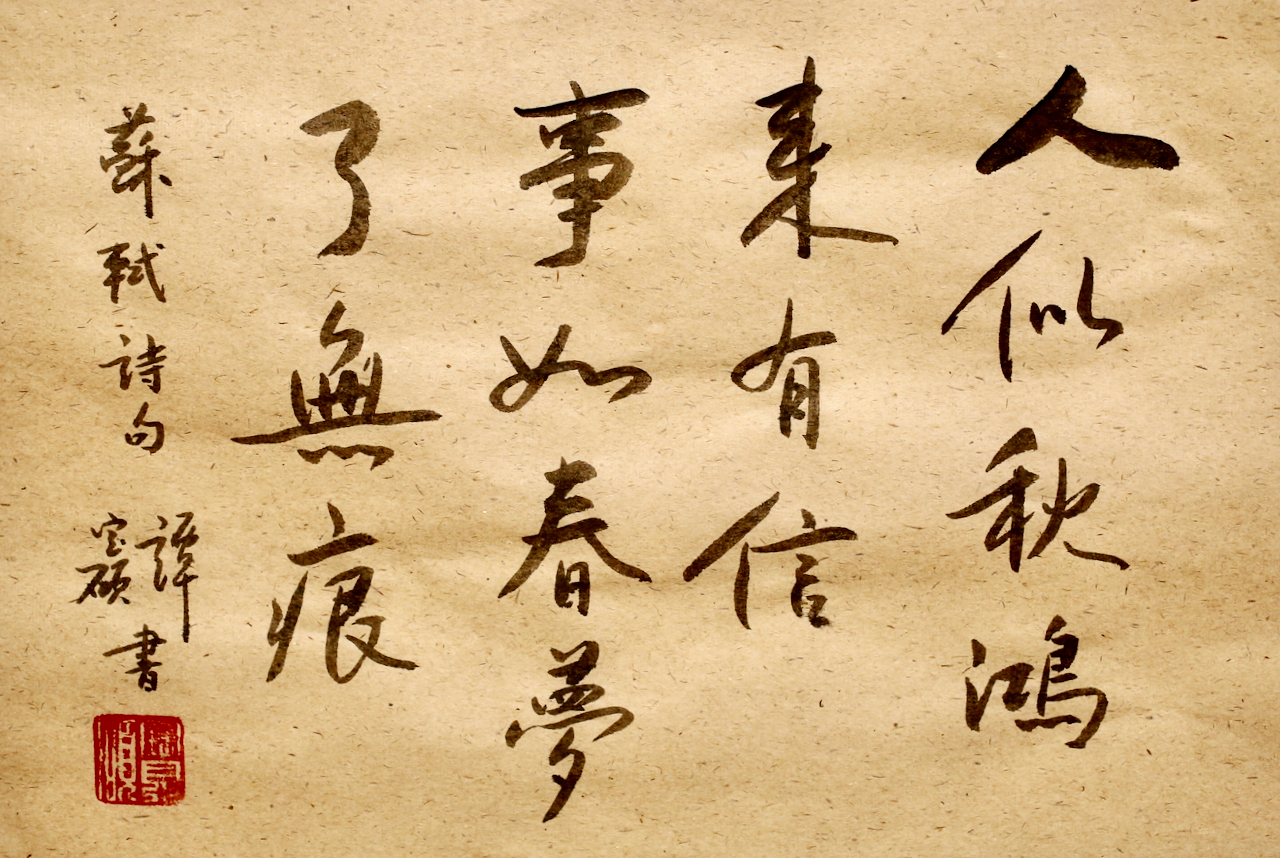 人似秋鴻
来有信
事如春夢
了無痕
蘇軾詩句
譚
碩書